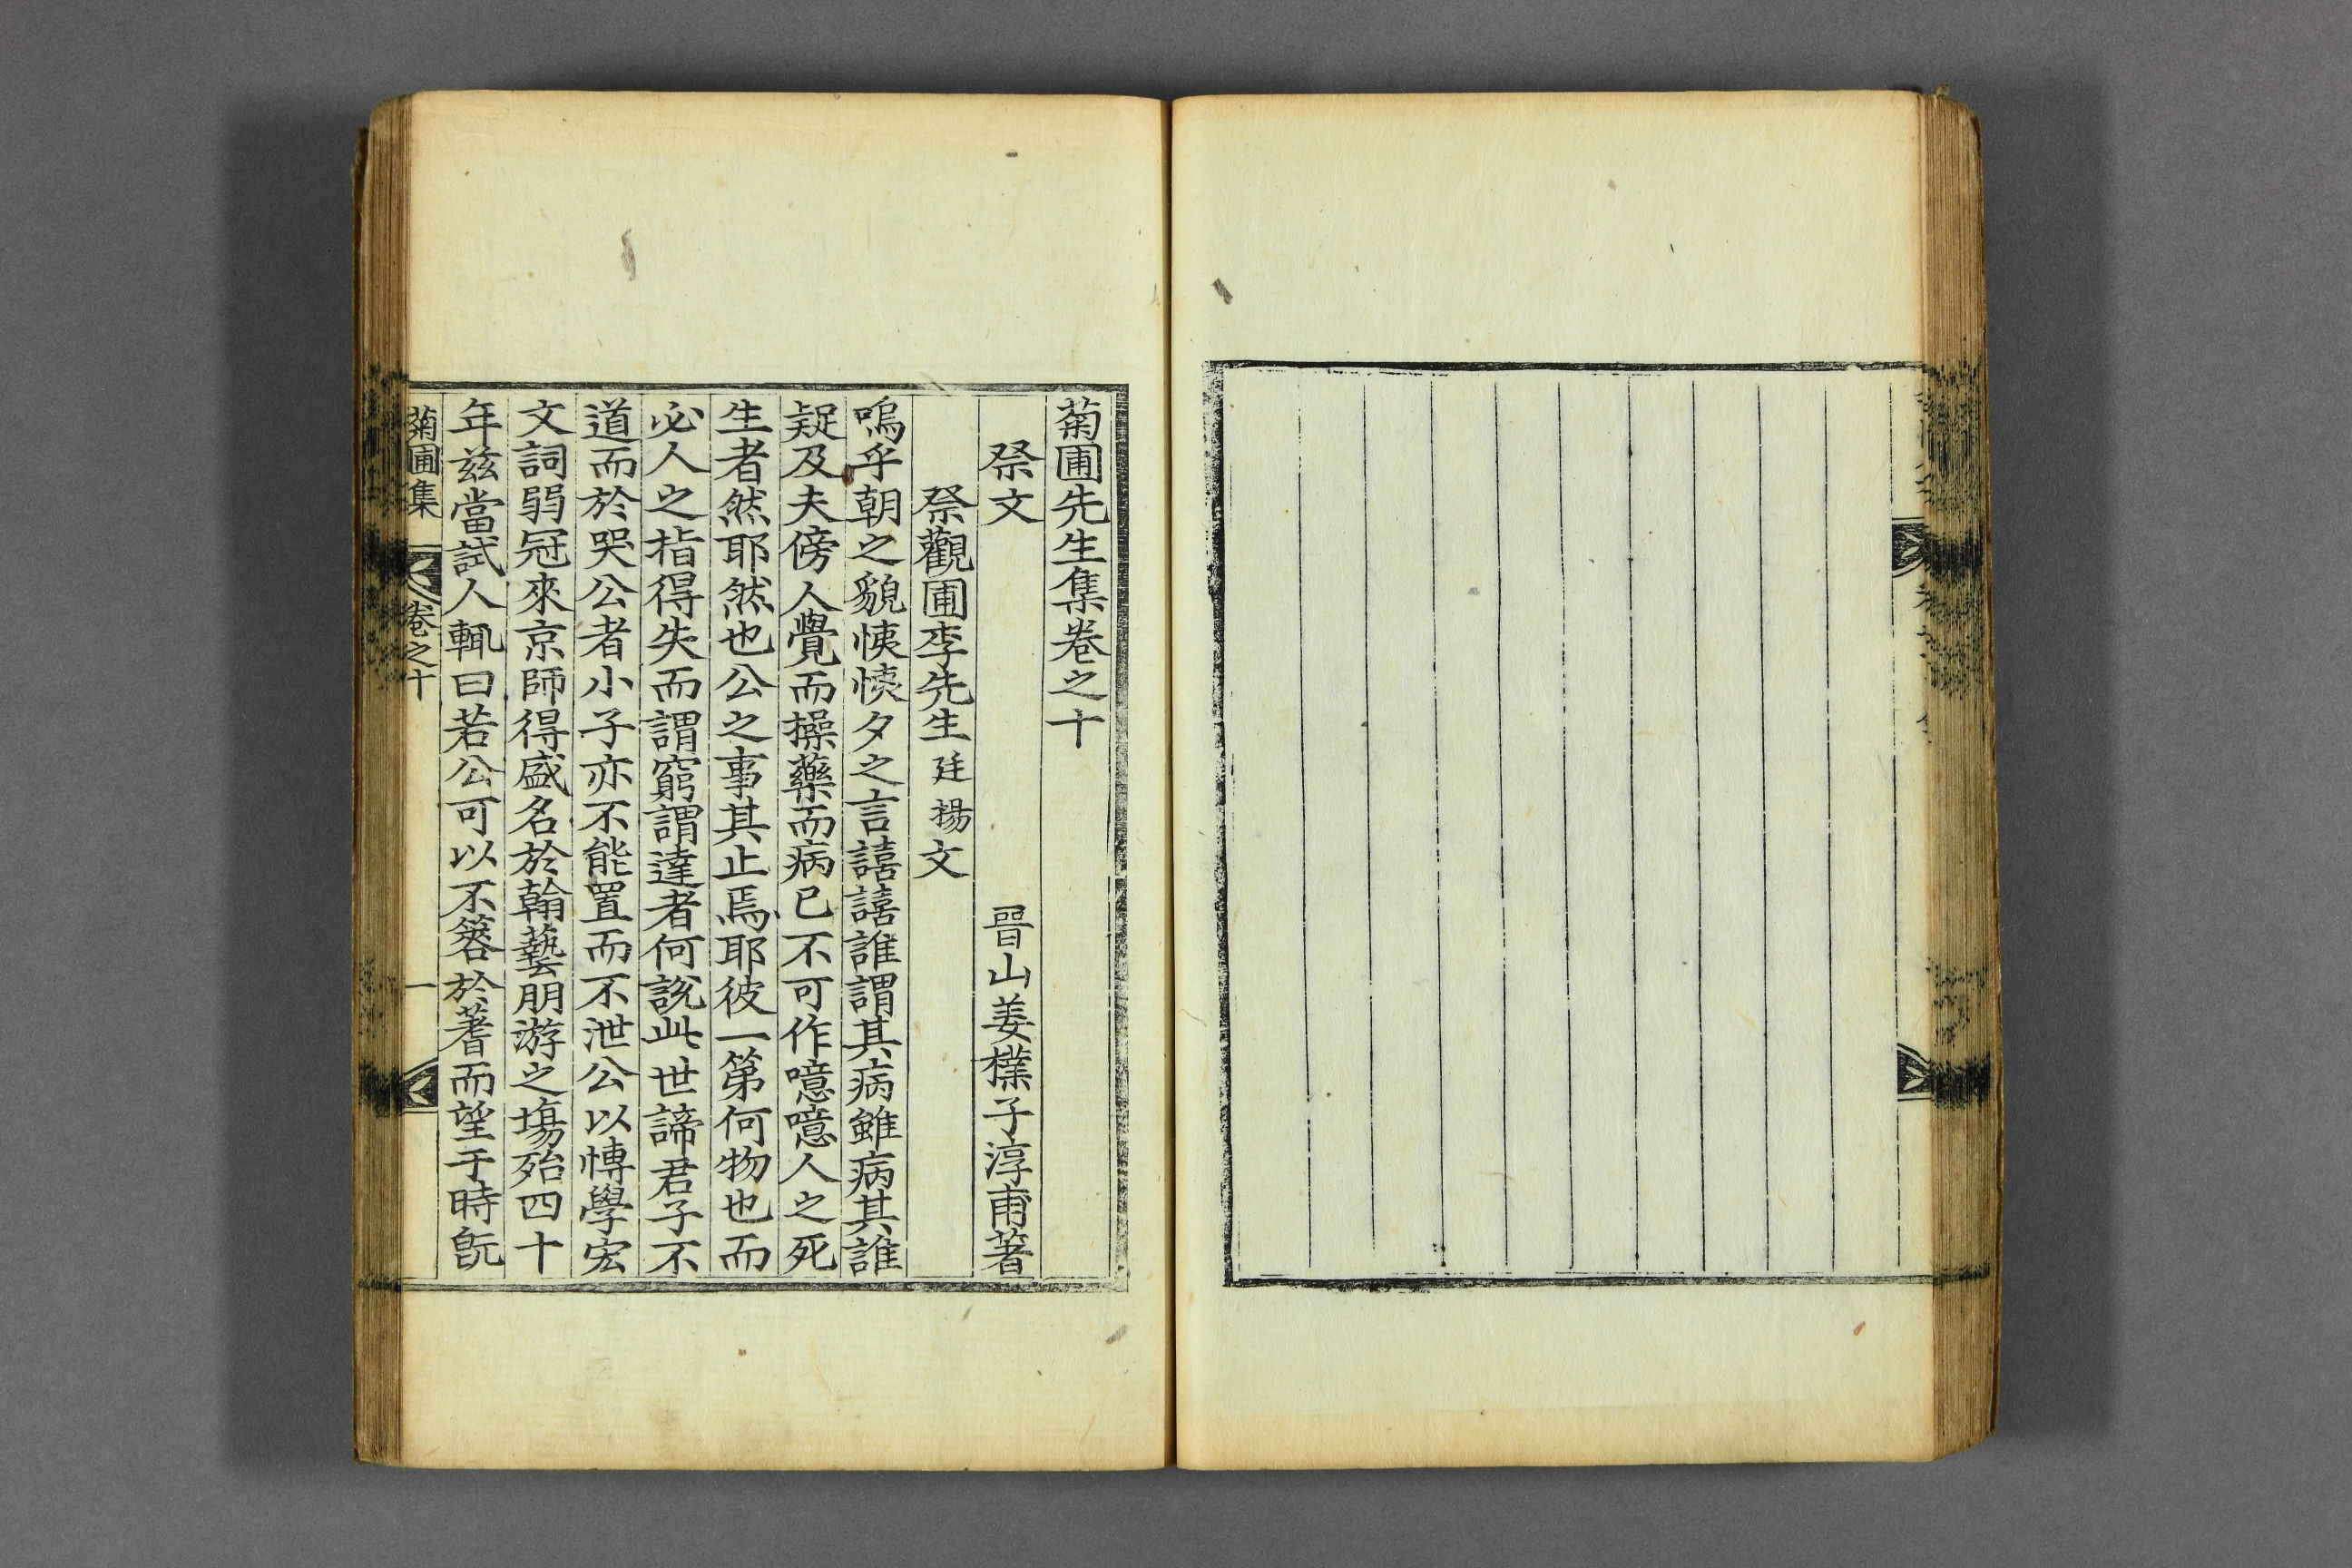 菊圃先生集卷之十
祭文
晉山姜樸子淳甫著
祭觀圃李先生廷揚文
嗚乎朝之貌恞恞夕之言譆譆誰謂其病雖病其誰
疑及夫傍人覺而操藥而病已不可作噫噫人之死
生者然耶然也公之事其止焉耶彼一第何物也而
必人之指得失而謂窮謂達者何說此世諦君子不
道而於哭公者小子亦不能置而不泄公以愽學宏
文詞弱冠來京師得盛名於翰藝朋游之塲殆四十
年玆當試人輒曰若公可以不簭於蓍而望于時旣
菊圃集
卷之十
一